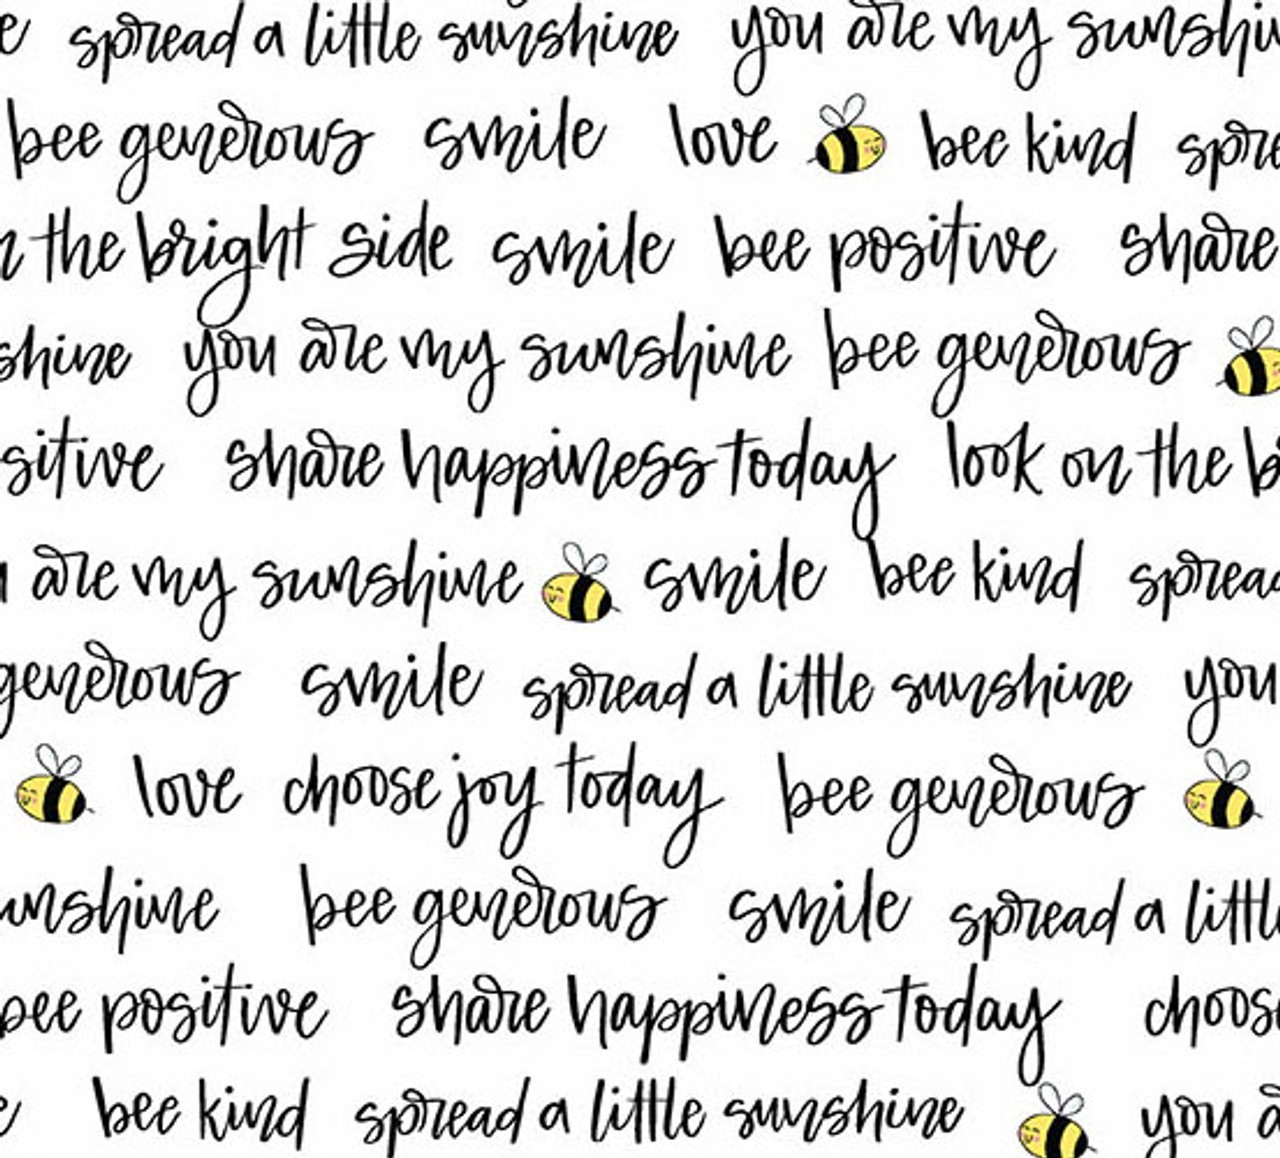 e spread a little sunshine you are my sunshi
bee generous smile love bee kind spre
n the bright side smile bee positive share
shine you are my sunshine bee generous
sitive share happiness today look on the b
u are my sunshine smile bee kind spread
generous smile spread a little sunshine you
love choose joy today bee generous
unshine bee generous smile spread a little
bee positive share happiness today choose
e bee kind spread a little sunshine you a